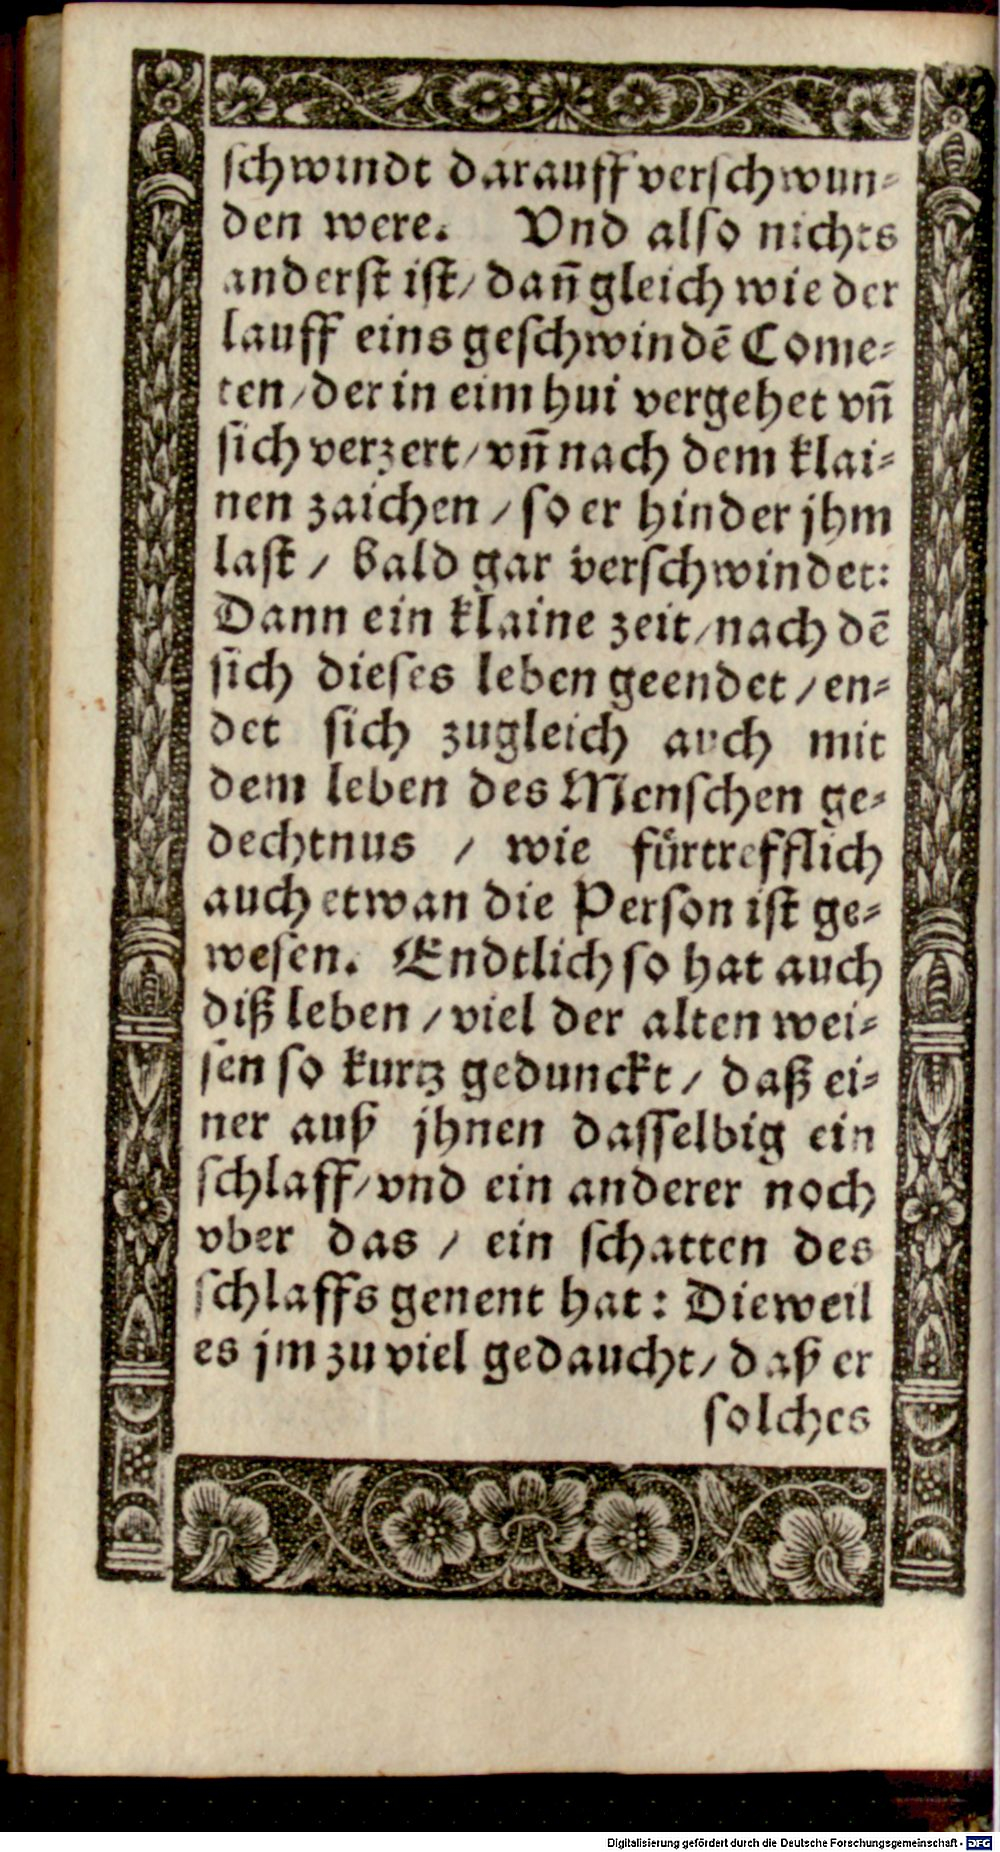 schwindt darauff verschwun⸗
den were. Vnd also nichts
anderst ist / dañ gleich wie der
lauff eins geschwindē Come⸗
ten / der in eim hui vergehet vñ
sich verzert / vñ nach dem klai⸗
nen zaichen / so er hinder jhm
last / bald gar verschwindet:
Dann ein klaine zeit / nach dē
sich dieses leben geendet / en⸗
det sich zugleich auch mit
dem leben des Menschen ge⸗
dechtnus / wie fürtrefflich
auch etwan die Person ist ge⸗
wesen. Endtlich so hat auch
diß leben / viel der alten wei⸗
sen so kurtz gedunckt / daß ei⸗
ner auß jhnen dasselbig ein
schlaff / vnd ein anderer noch
vber das / ein schatten des
schlaffs genent hat: Dieweil
es jm zu viel gedaucht / daß er
solches
Digitalisierung gefördert durch die Deutsche Forschungsgemeinschaft - DFG